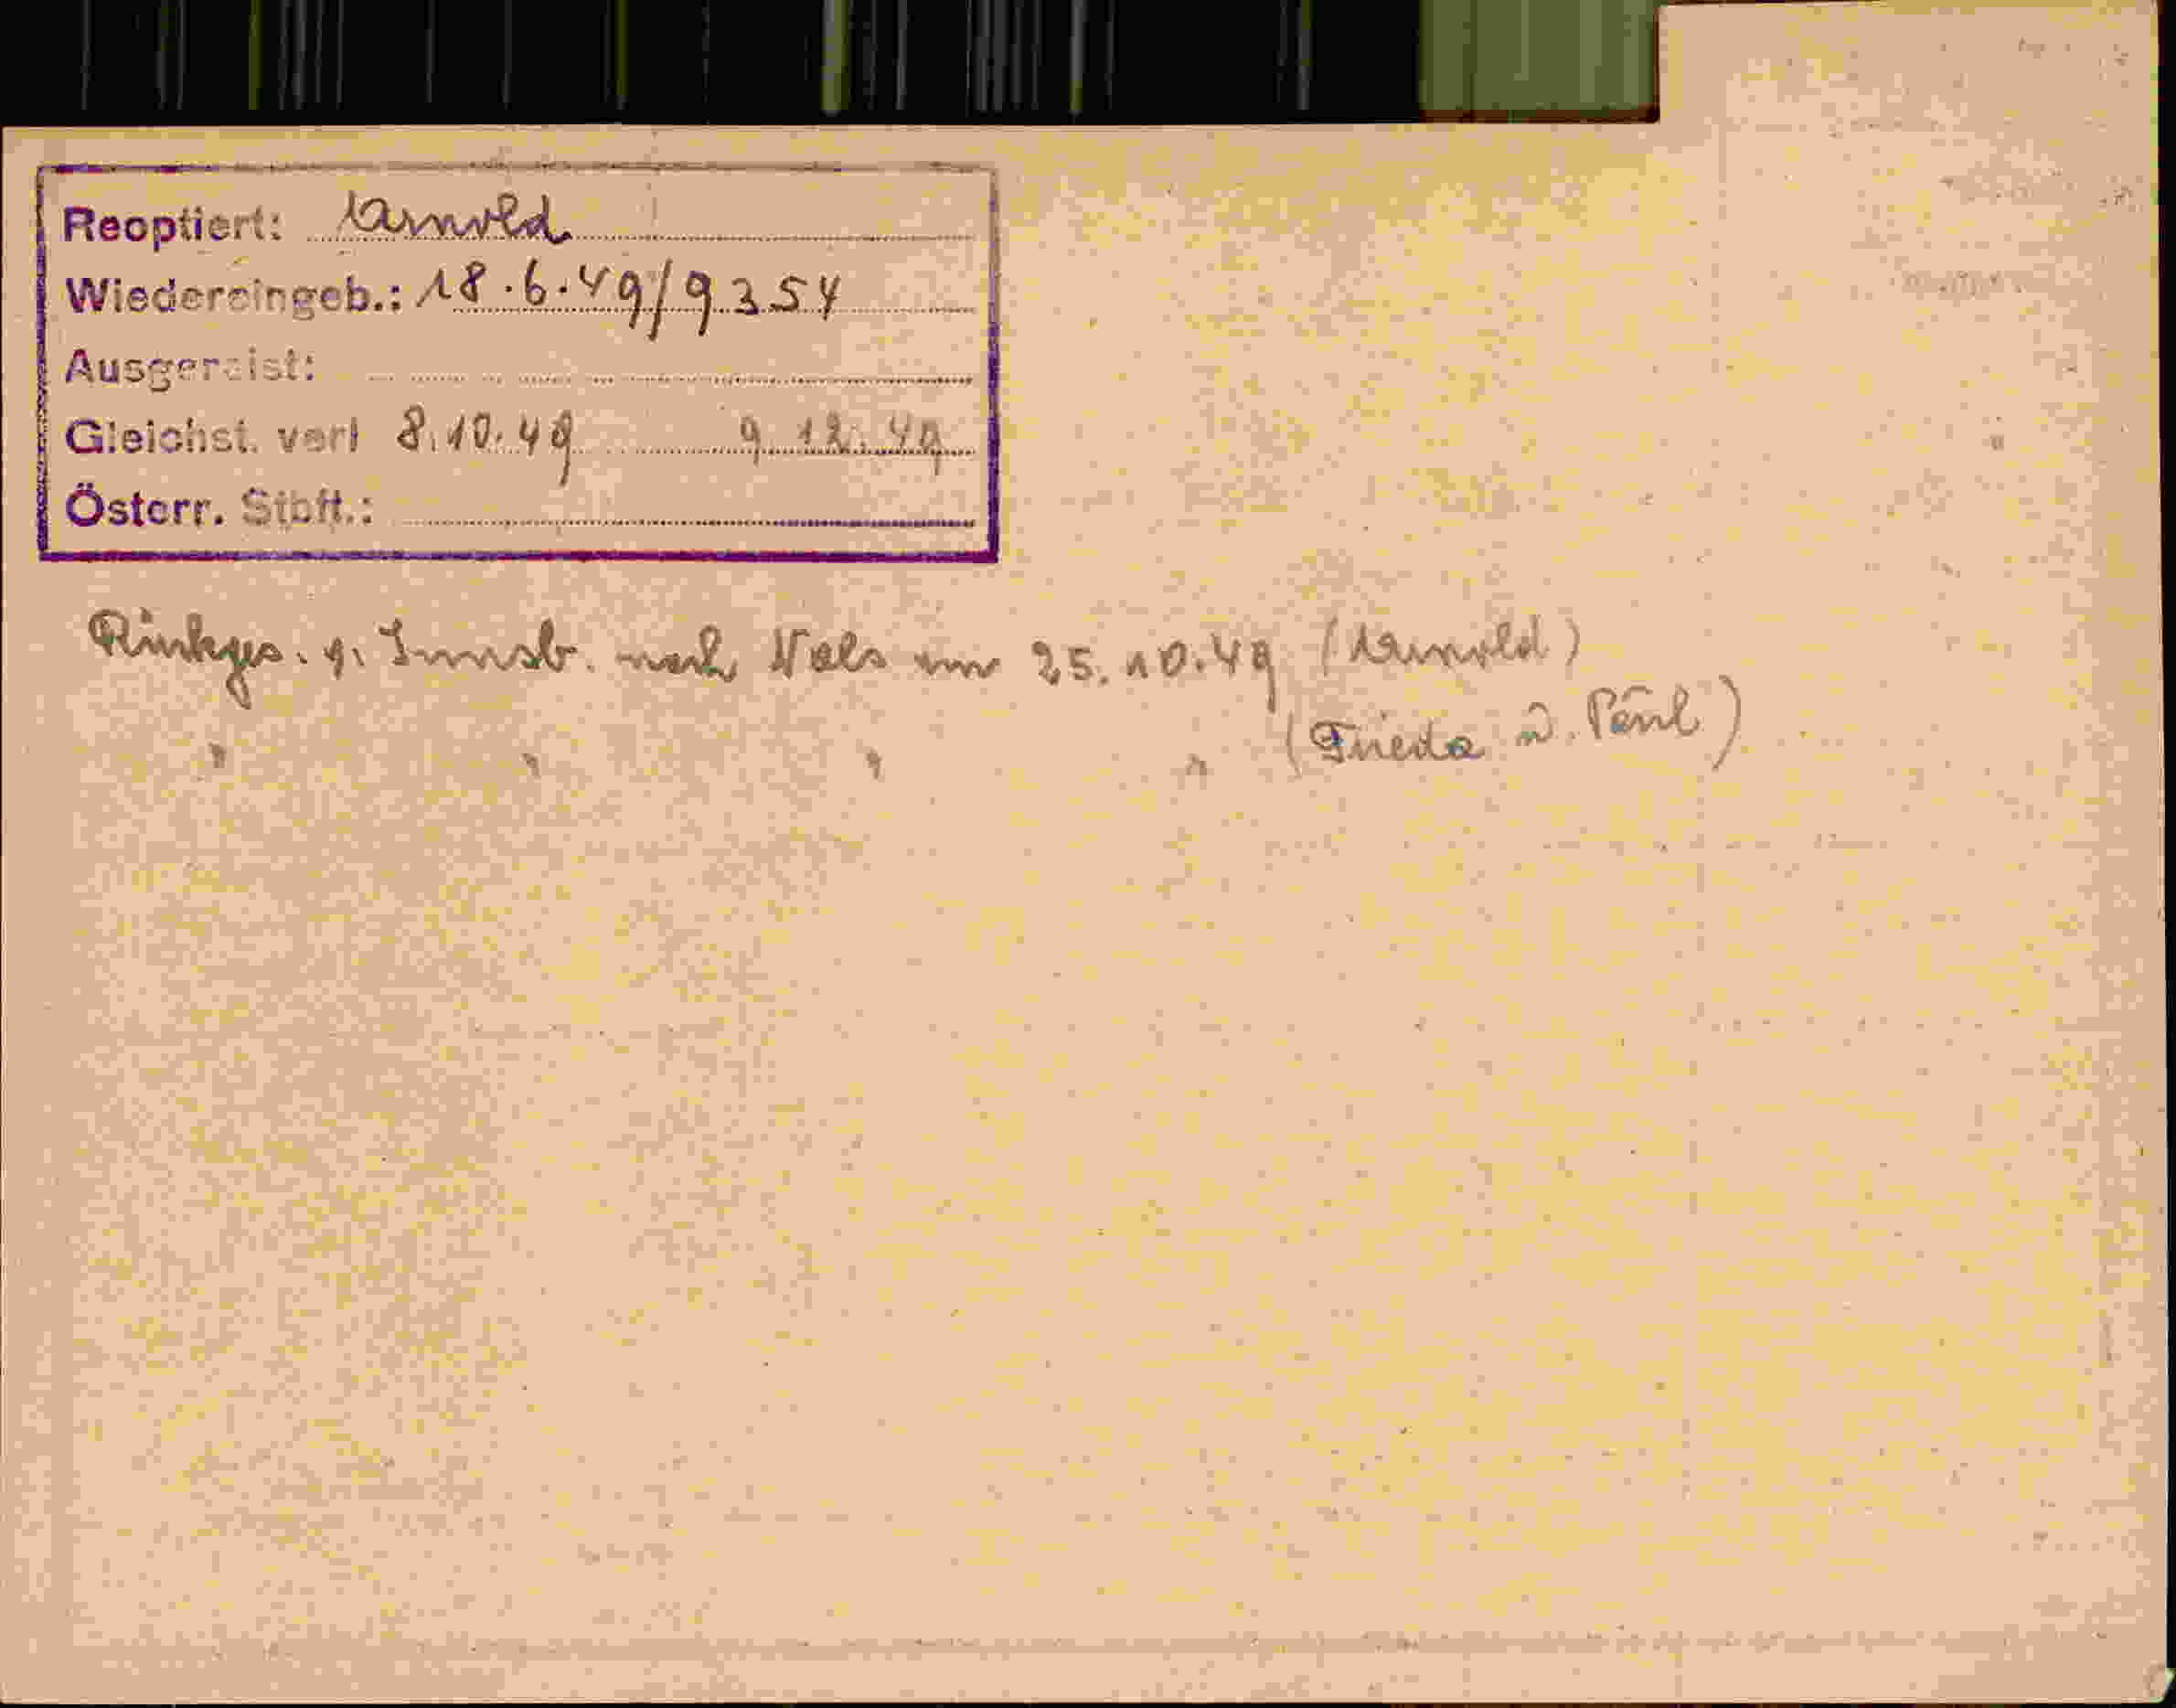 Reoptiert: Arnold
Wiedereingeb.: 18.6.49/9354
Ausgereist:
Gleichst. verl 8.10.49 9.12.49
Österr. Stbft.:
Rückges. g. Innsb. nach Vols am 25.10.49 (Arnold)
" " " " (Frieda u. Paul)